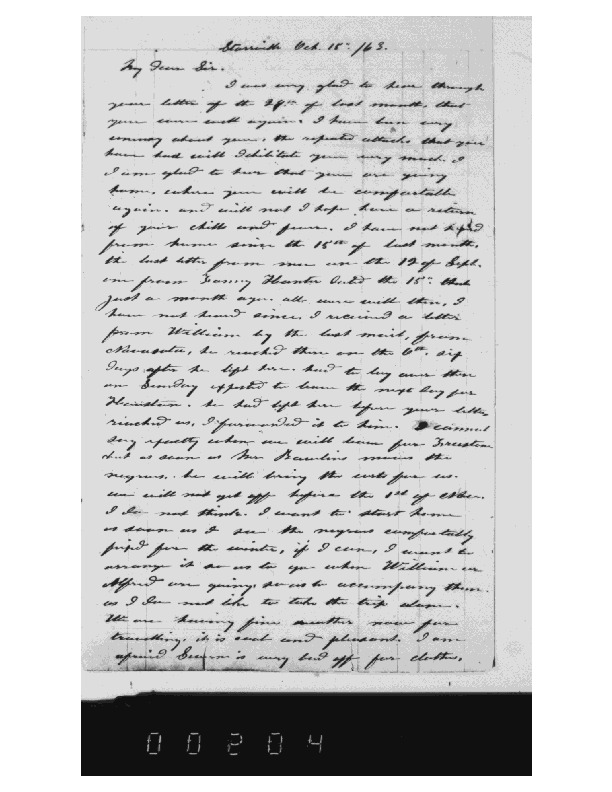 Oct. 18th /63.
My Dear Sir.
I was very glad to hear through
your letter of the 29th of last month, that
you were well again. I have been very
uneasy about you, the repeated attacks that you
have had will debilitate you very much. I
I am glad to hear that you are going
home, where you will be comfortable
again. and will not I hope have a return
of your chills and fever. I have not heard
from home since the 15th of last month,
the last letter from was on the 12 of Sept.
one from Fanny Hunter dated the 15th that
just a month ago. all were well then, I
have not heard since. I received a letter
from William by the last mail, from
Navasota, he reached there on the 6th. six
days after he left here. had to lay over there
on Sunday expected to leave the next day for
Houston. he had left here before your letter
reached us, I forwarded it to him. I cannot
say exactly when we will leave for
but as soon as Mr Rawlins moves the
negroes. he will bring the carts for us.
we will not get off before the 1st of Nov.
I do not think. I want to start home
as soon as I see the negroes comfortably
fixed for the winter, if I can, I want to
arrange it so as to go when William or
Alfred are going, so as to accompany them.
as I do not like to take the trip alone.
We are having fine weather now for
travelling, it is cool and pleasant. I am
afraid is very bad off for clothes.
00204